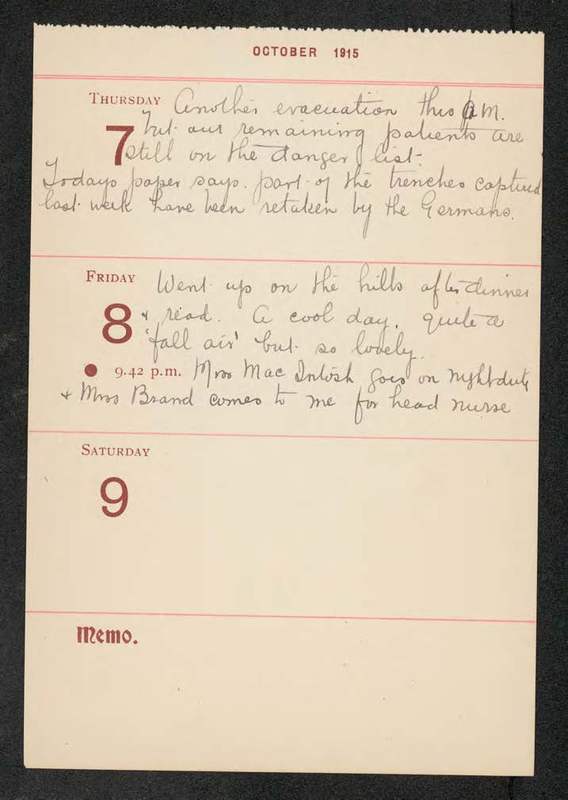 OCTOBER 1915
THURSDAY Another evacuation this
7 but our remaining patients are
still on the danger list.
Todays paper says. part of the trenches captured
last week have been retaken by the Germans.
FRIDAY Went up on the hills after dinner
8 & read. A cool day. quite a
'fall air' but so lovely.
9.42 p.m. Miss Mac Intosh goes on night duty
& Miss Brand comes to me for head nurse
SATURDAY
9
Memo.